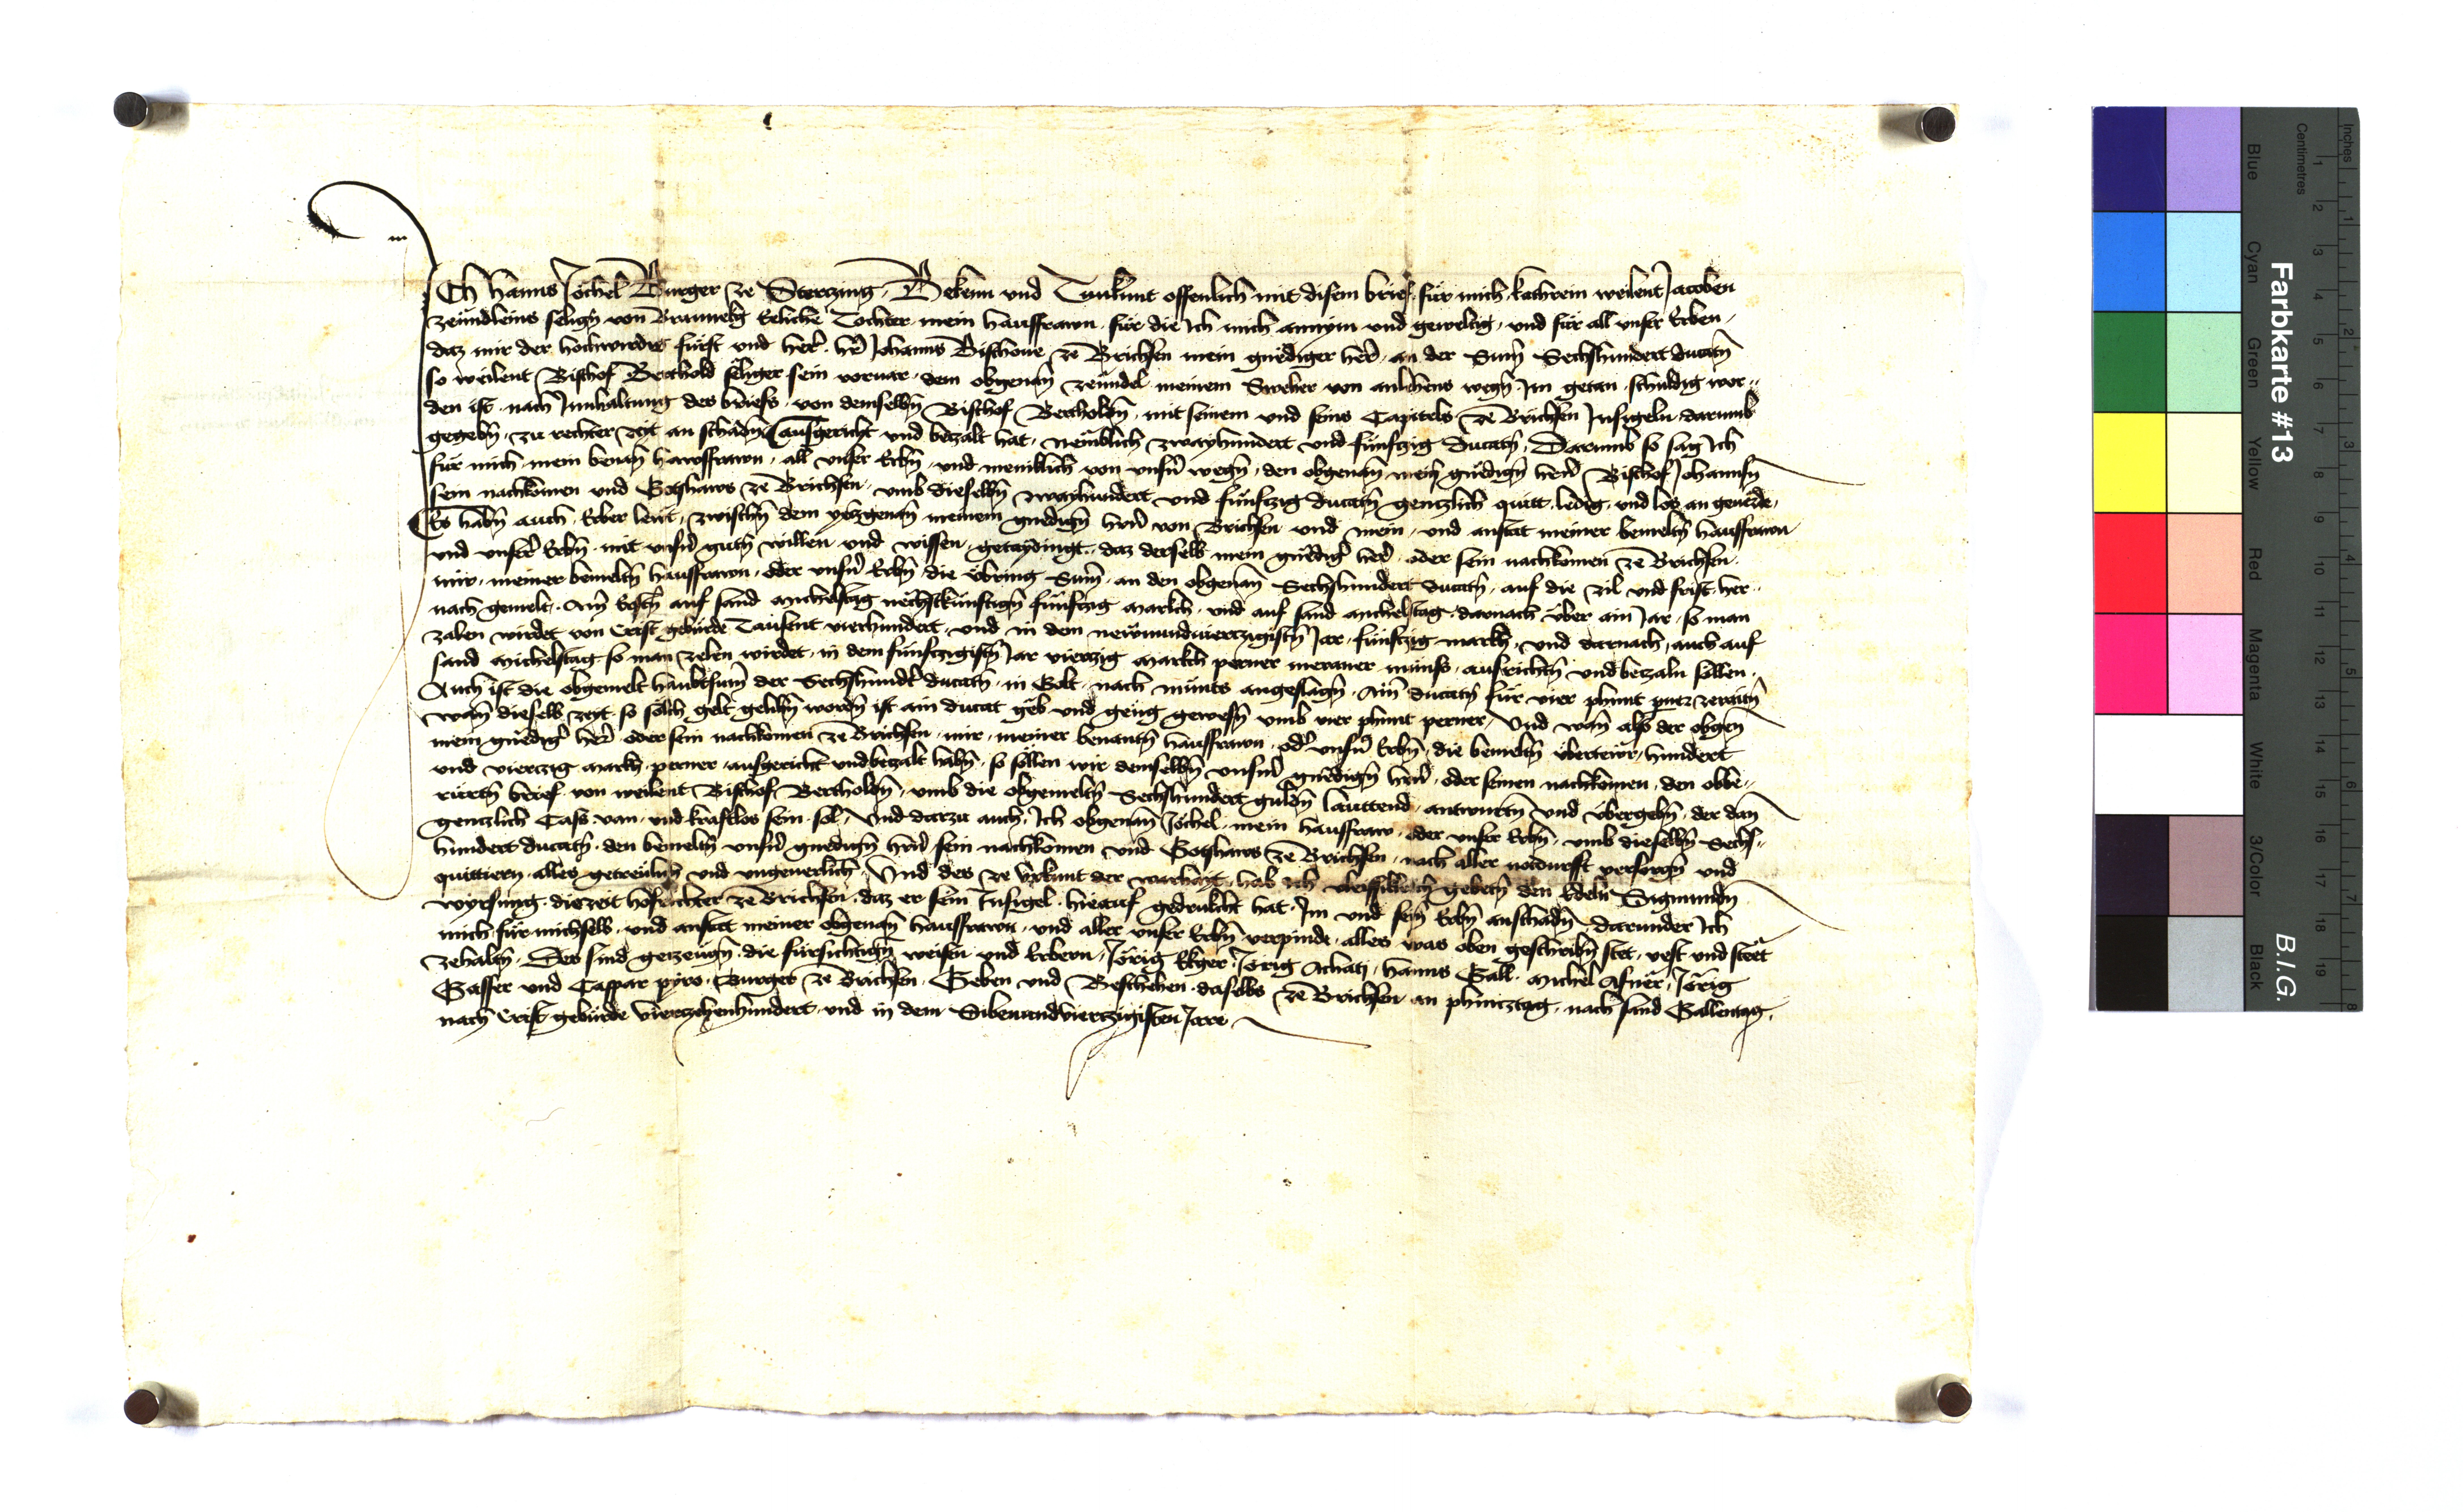 Ich Hanns Jöchel Burger ze Stertzing, Bekenn und Tunkunt offenlich mit disem brief, für mich, kathrein weilent Jacoben
Zeundleins seligñ von Braunekg Eeliche Tochter mein hausfrawn, für die ich mich annym und geweltig, und für all unser Erben,
daz mir der hochwirdig fürst und her͛, her͛ Johanns Bischoue ze Brichsen mein gnediger her͛, an der Sum̄ Sechshundert ducatñ
so weilent Bischof Berthold seliger sein voruar, dem obgenañ Zeundel meinem Sweher von anlehens wegñ, Im getan, schuldig wor=
den ist, nach Innhaltung des briefs, von demselbñ Bischof Bertholdñ, mit seinem und seins Capitels ze Brichsen Insigeln, darumb
gegebñ, zu rechter zeit an schadñ ausgericht und betzalt hat, nemblich zwayhundert und fünftzig ducatñ, Darumb so sag ich
für mich, mein benañ hawsfrawn, all unser Erbñ, und meniklich von unsern͛ wegñ, den obgenañ mein gnedigñ herñ Bischof Johannsñ
sein nachkomen und Gotzhaws ze Brichsen, umb dieselbñ zwayhundert und fünftzig ducatñ gentzlich quitt, ledig, und los, an geuerde,
Es habñ auch Erber leüt, zwischñ dem yetzgenañ meinem gnedigñ herñ von Brichsen und mein, und anstat meiner bemeltñ hausfrawn
und unser͛ Erbñ, mit unsern͛ gutñ willen und wissen, getaydingt, daz derselb mein gnedig͛ her͛, oder sein nachkomen ze Brichsen,
mir, meiner bemeltñ hausfrawn, oder unsern͛ Erbñ, die übring Sum̄, an den obgenañ Sechshundert ducatñ, auf die zil und frist, her=
nach gemelt, Am Erstñ auf sand Michelstag nechstkünftigñ fünftzig markch, und auf sand Michelstag, darnach über ain Jar, so man
zalen wirdet von Crist gebürde Tausent vierhundert, und in dem newnundviertzigistñ Jar, fünftzig markh, und darnach, auch auf
sand Michelstag, so man zelen wirdet, in dem fünftzigistñ Jar viertzig markch perner meraner münss, ausrichtñ und betzaln sullen,
Auch ist die obgemelt haubtsum̄ der Sechshundt͛ ducatñ, in Golt, nach münts angeslagñ, Ain ducatñ für vier phunt zeraitñ
wañ dieselb zeit so solich gelt gelihñ wordñ ist, ain ducat geb und geng gewesñ, umb vier phunt perner, Und wañ also der obgeñ
mein gnedig͛ her͛, oder sein nachkomen ze Brichsen, mir, meiner benantñ hausfrawn, od͛ unsern͛ Erbñ, die bemeltñ übertewr, hundert
und viertzig markh, perner, ausgericht und betzalt habñ, so sullen wir demselbñ unserm͛ gnedigñ herñ, oder seinen nachkomen, den obbe=
rürtñ brief, von weilent Bischof Bertholdñ, umb die obgemeltñ Sechshundert guldñ lauttend, antwurtñ und übergebñ, der dañ
gentzlich Cass, van, und kraftlos sein sol, Und darzu auch, Ich obgenañ Jöchel, mein hausfraw, oder unser Erbñ, umb dieselbñ Sechs=
hundert ducatñ, den bemeltñ unsern͛ gnedigñ herñ, sein nachkomen und Gotzhaws ze Brichsen, nach aller notdurfft versorgñ und
quittiern, alles getreülich und ungeuerlich, Und des ze Urkunt der warhayt, hab ich vleissiklich gebetñ den Edeln Sigmundñ
wyrsung, diezeit hofrichter ze Brichsen, daz er sein Insigel, hieauf gedrukcht hat, Im und sein Erbñ anschadñ, darunder Ich
mich für michselb, und anstat meiner obgenañ hausfrawn, und aller unser Erbñ verpinde, alles was oben geschribñ stet, vest und stet
zehaltñ, Des sind getzeugñ, die fürsichtigñ weisen und Erbern, Jörig Ekger, Jörig Achatz, hanns Gall, Michel Asner, Jörig
Gasser und Caspar pyro, Burger ze Brichsen, Geben und Beschehen daselbs ze Brichsen, an phintztag, nach sand Gallentag,
nach Crist gebürde viertzehenhundert, und in dem Sibenundviertzigisten Jare
Farbkarte #13
B.I.G.
Inches
Centimetres
Blue
Cyan
Green
Yellow
Red
Magenta
White
3/Color
Black